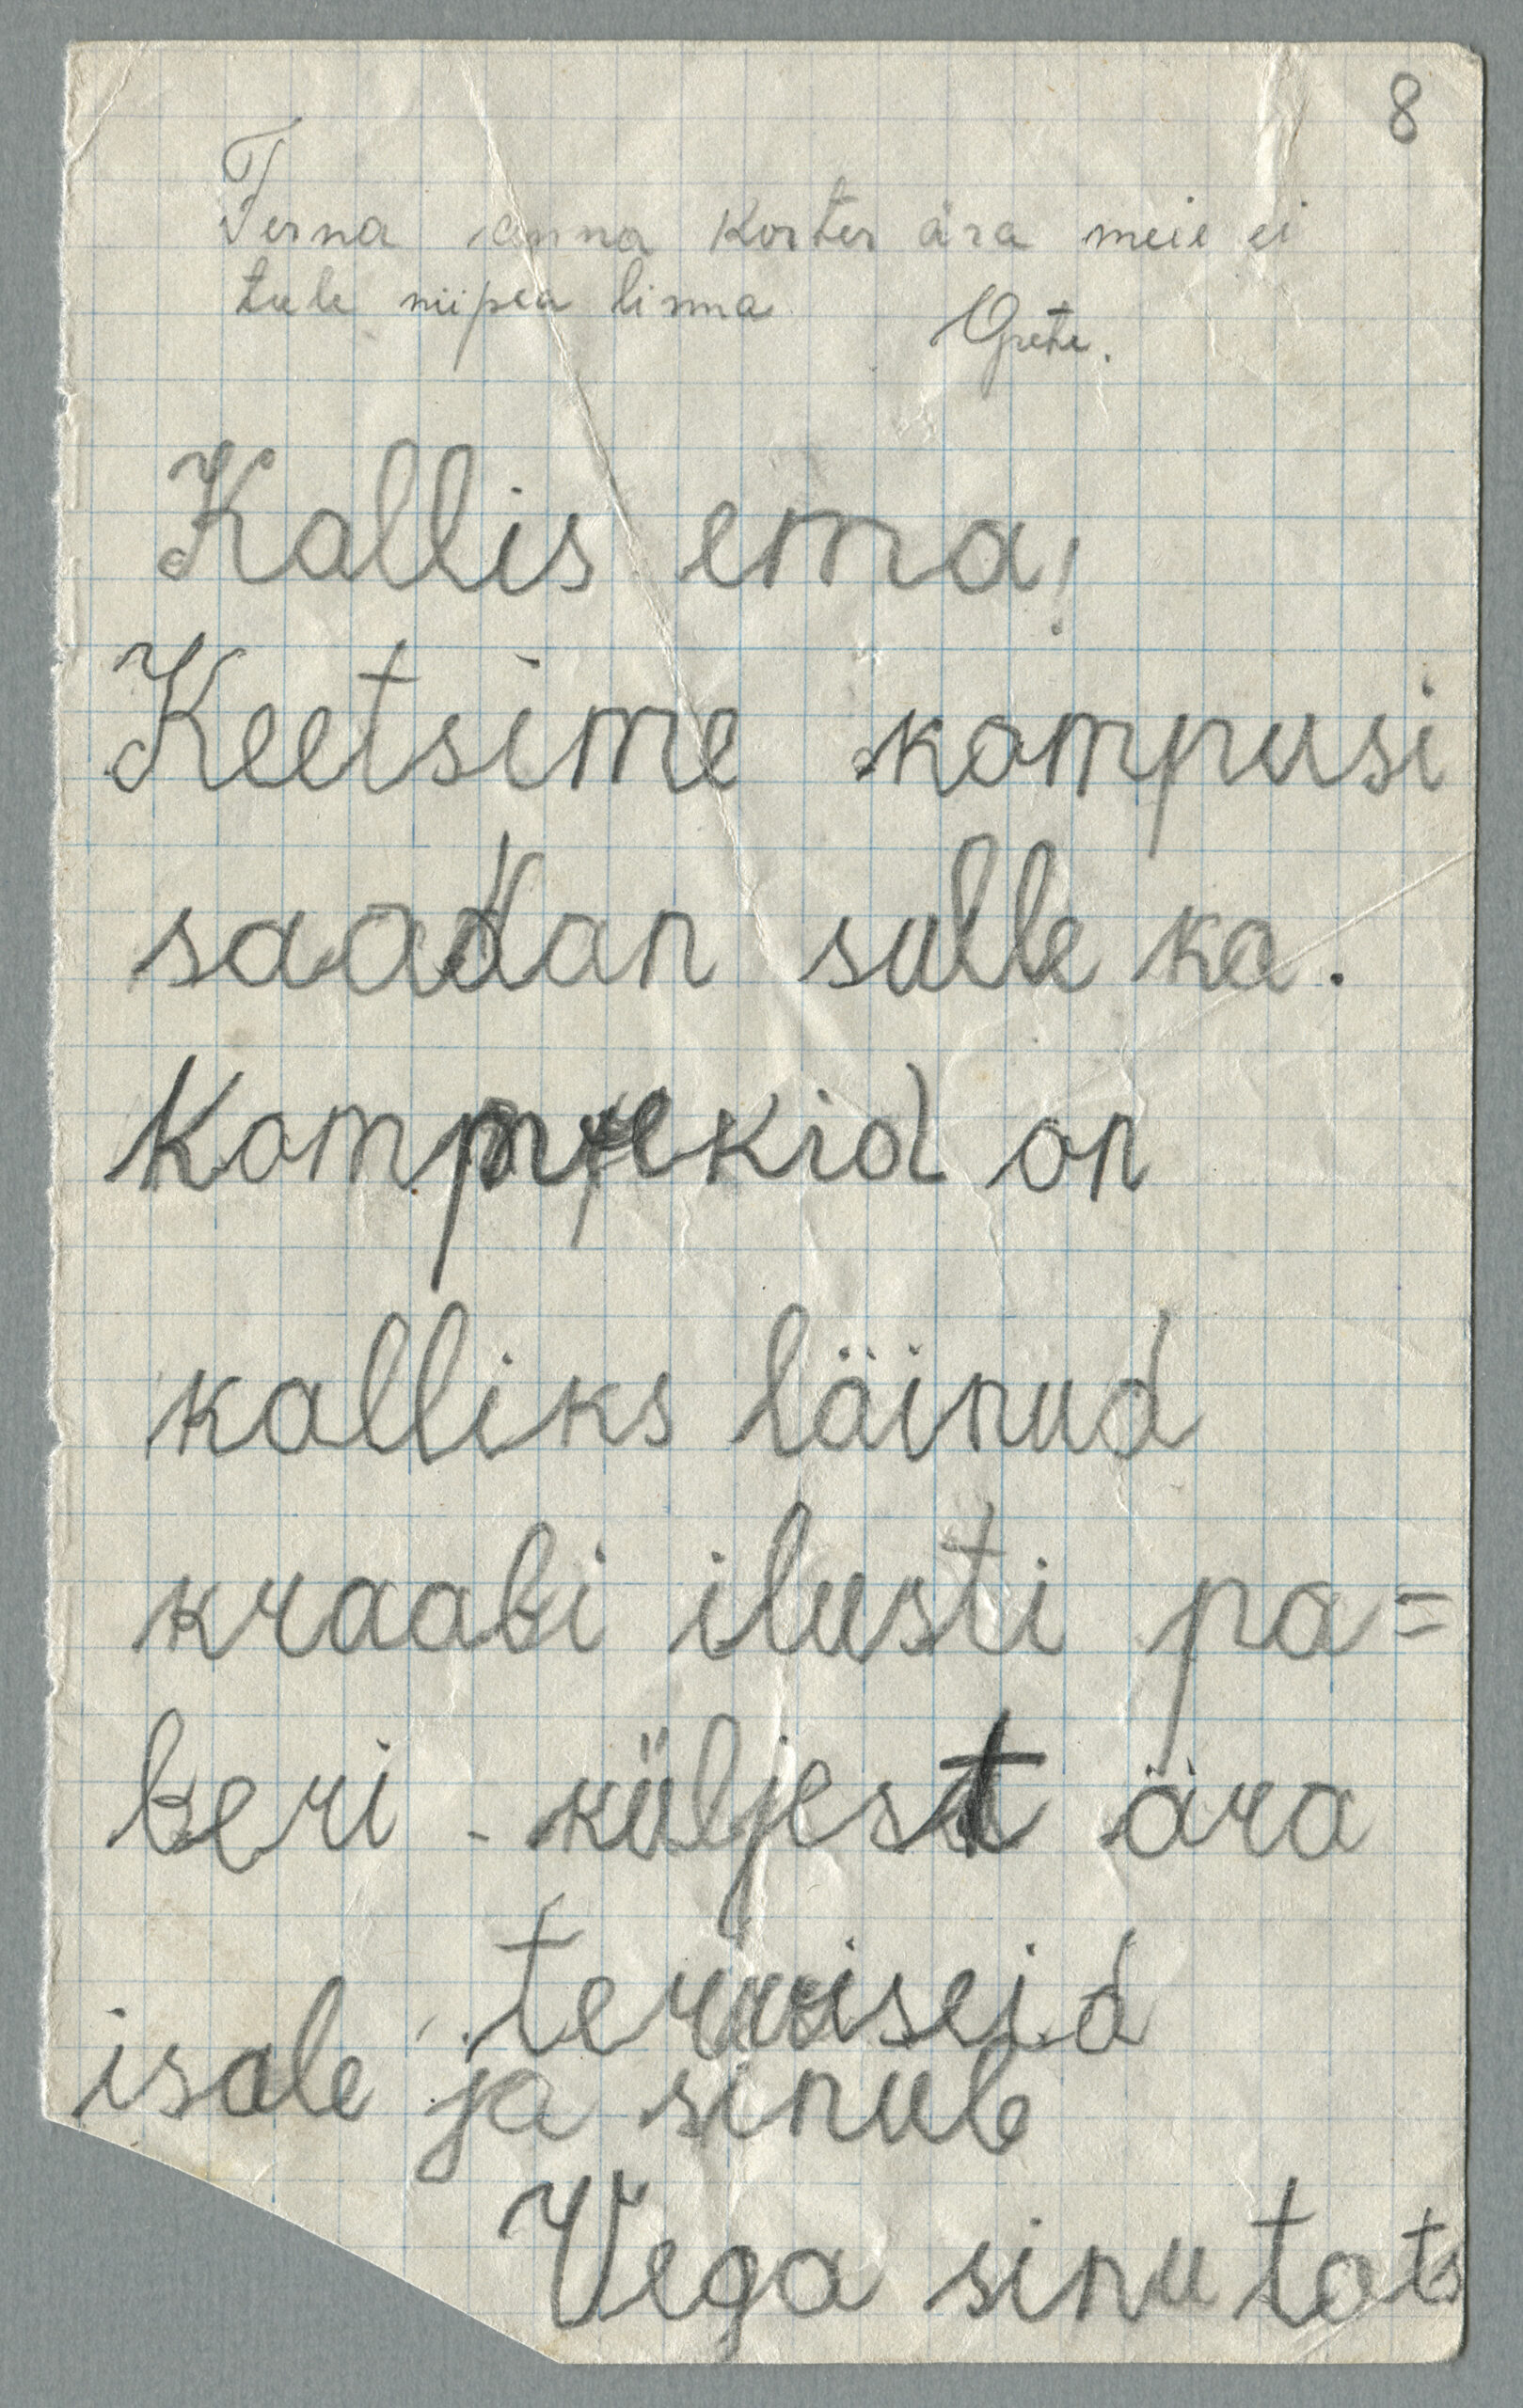 8
T
Terna anna korter ära meie ei
tule niipea linna
Grete.
Kallis ema!
Keetsime kompusi
saadan sulle ka.
Kompvekid on
kalliks läinud
kraabi ilusti pa=
beri - küljest ära
terviseid
isale ja sinule
Vega sinu tots